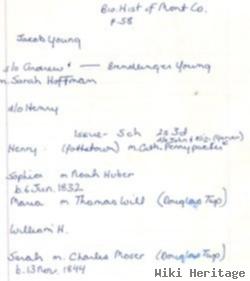 Bio. Hist of Mont Co.
p. 58
Jacob Young
s/o Andrew & — Young
m. Sarah Hoffman
s/o Henry
Issue - 5ch 2s 3d
d/o John &
Henry (Pottstown) m. Cath. Pennypacker
Sophia m Noah Huber
b. 6 Jun. 1832
Maria m Thomas Will (Douglas Twp)
William H.
Sarah m. Charles Moser (Douglas Twp)
b. 13 Nov. 1844
Wiki Heritage